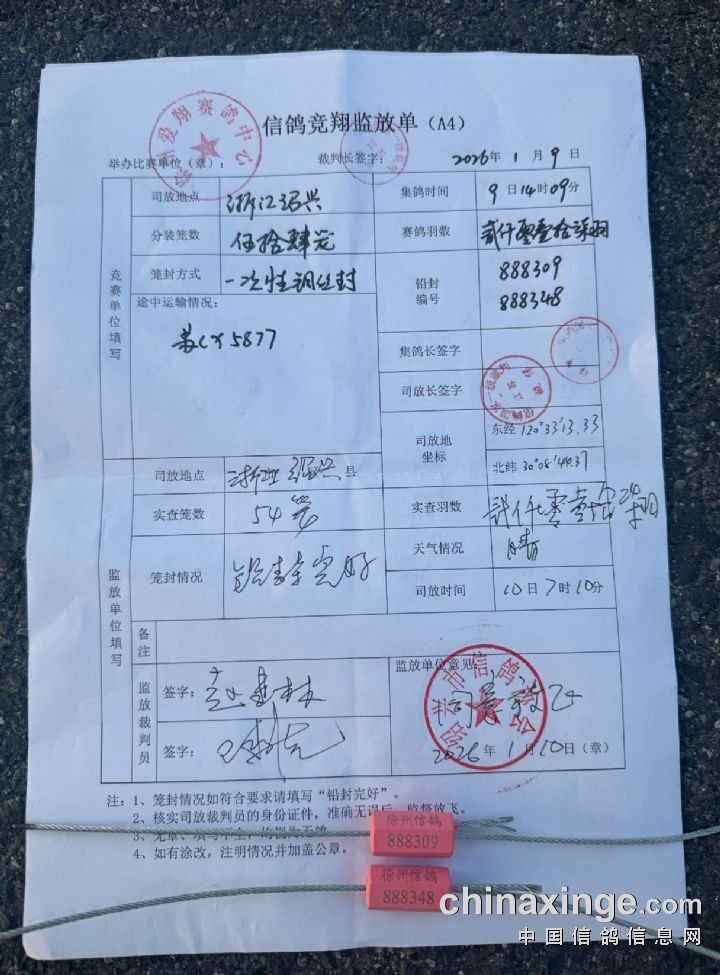 信鸽竞翔监放单（A4）
举办比赛单位（章）： 裁判长签字： 2026年1月9日
竞赛单位填写
司放地点 浙江绍兴 集鸽时间 9日14时09分
分装笼数 伍拾肆笼 赛鸽羽数 贰仟零壹拾柒羽
笼封方式 一次性钢丝封 铅封编号 888309
888348
途中运输情况：
苏CY5877
集鸽长签字
司放长签字
司放地坐标 东经 120°33′13.33
北纬 30°08′44.37
监放单位填写
司放地点 浙江绍兴县
实查笼数 54笼 实查羽数 贰仟零壹拾柒羽
天气情况 晴
笼封情况 铅封完好 司放时间 10日7时10分
备注
监放裁判员 签字：
签字：
监放单位意见：
同意放飞
2026年1月10日（章）
注：1、笼封情况如符合要求请填写“铅封完好”。
2、核实司放裁判员的身份证件，准确无误后，监督放飞。
3、无章、填写不全，均视为无效。
4、如有涂改，注明情况并加盖公章。
徐州信鸽
888309
徐州信鸽
888348
chinaxinge.com
中国信鸽信息网